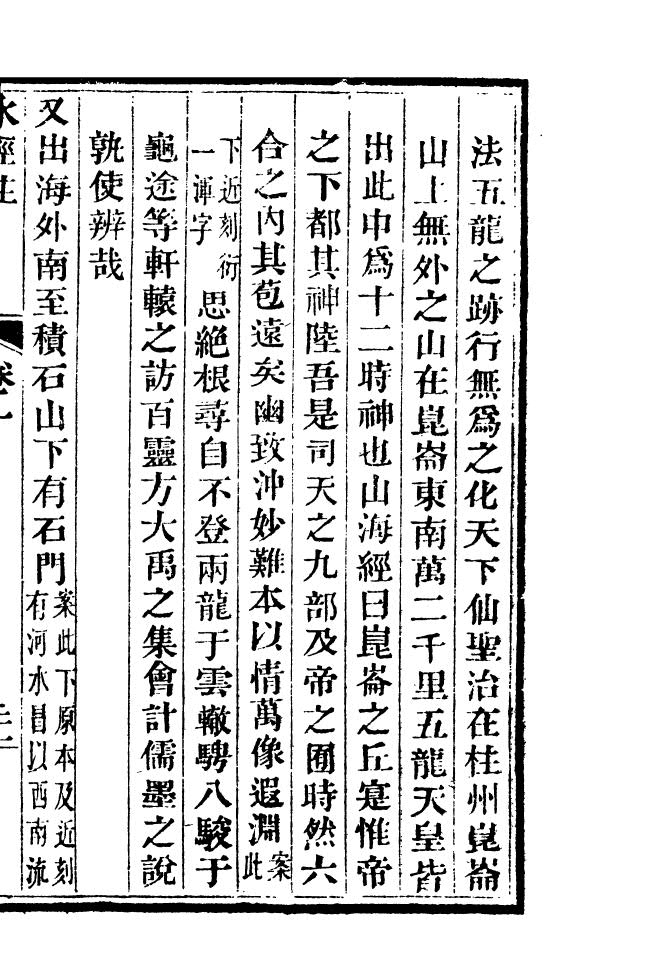 法五龍之跡行無爲之化天下仙聖治在柱州崑崙
山上無外之山在崑崙東南萬二千里五龍天皇皆
出此中爲十二時神也山海經曰崑崙之丘寔惟帝
之下都其神陸吾是司天之九部及帝之囿時然六
合之內其苞遠矣幽致沖妙難本以情萬像遐淵案此
下近刻衍一渾字思絶根尋自不登兩龍于雲轍騁八駿于
龜途等軒轅之訪百靈方大禹之集會計儒墨之說
孰使辨哉
又出海外南至積石山下有石門案此下原本及近刻有河水冒以西南流
水經注 卷一